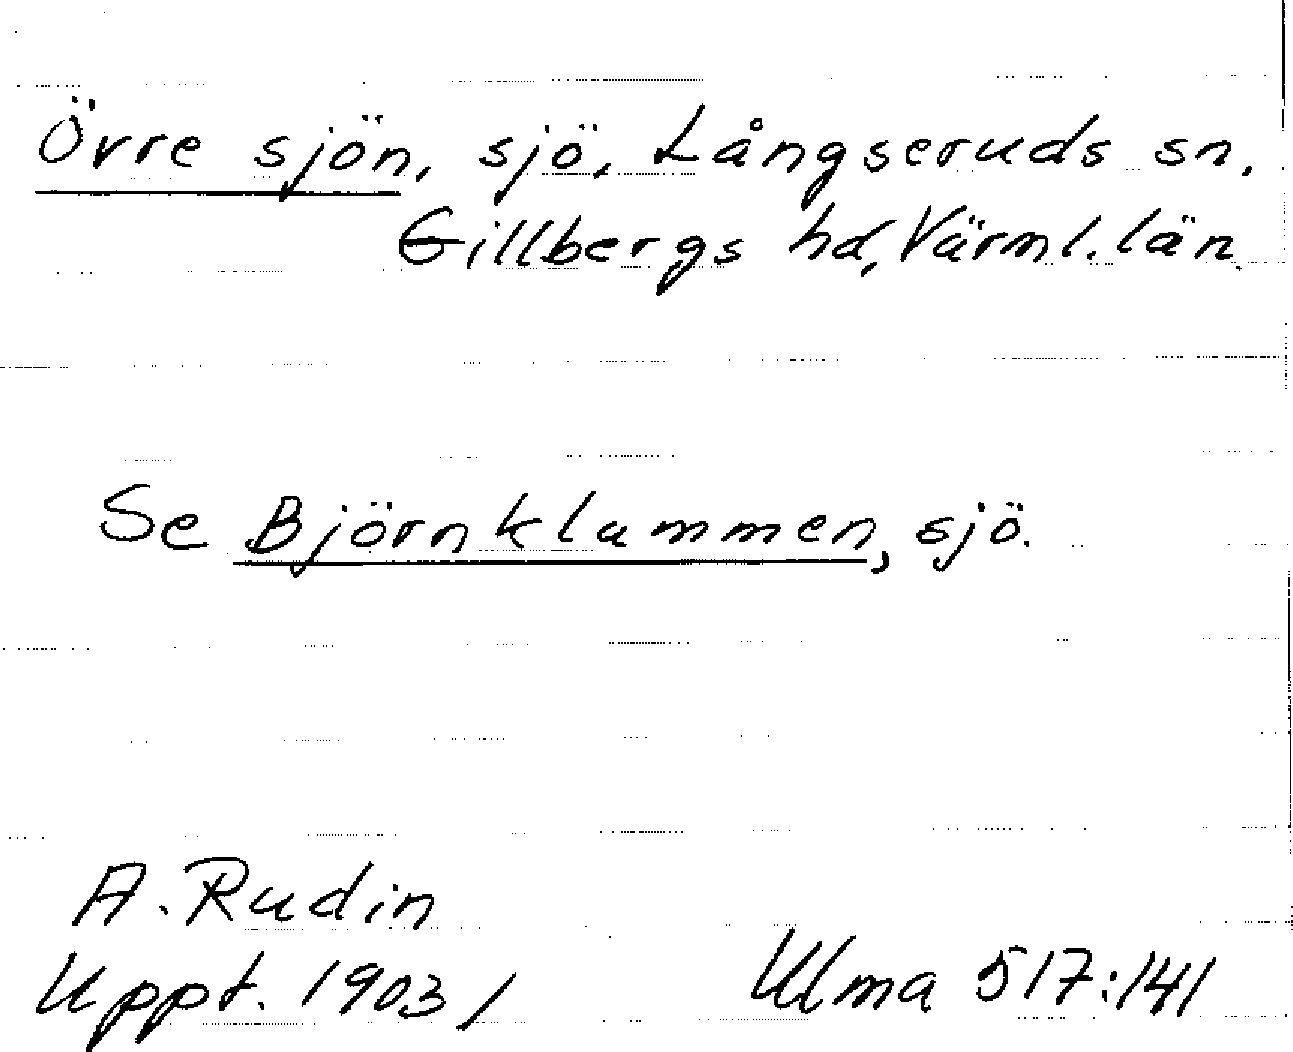 Övre sjön, sjö, Långseruds sn.
Gillbergs hd, Värml. län.
Se Björnklammen, sjö.
A. Rudin
Uppt. 1903 /
Ulma 517:141